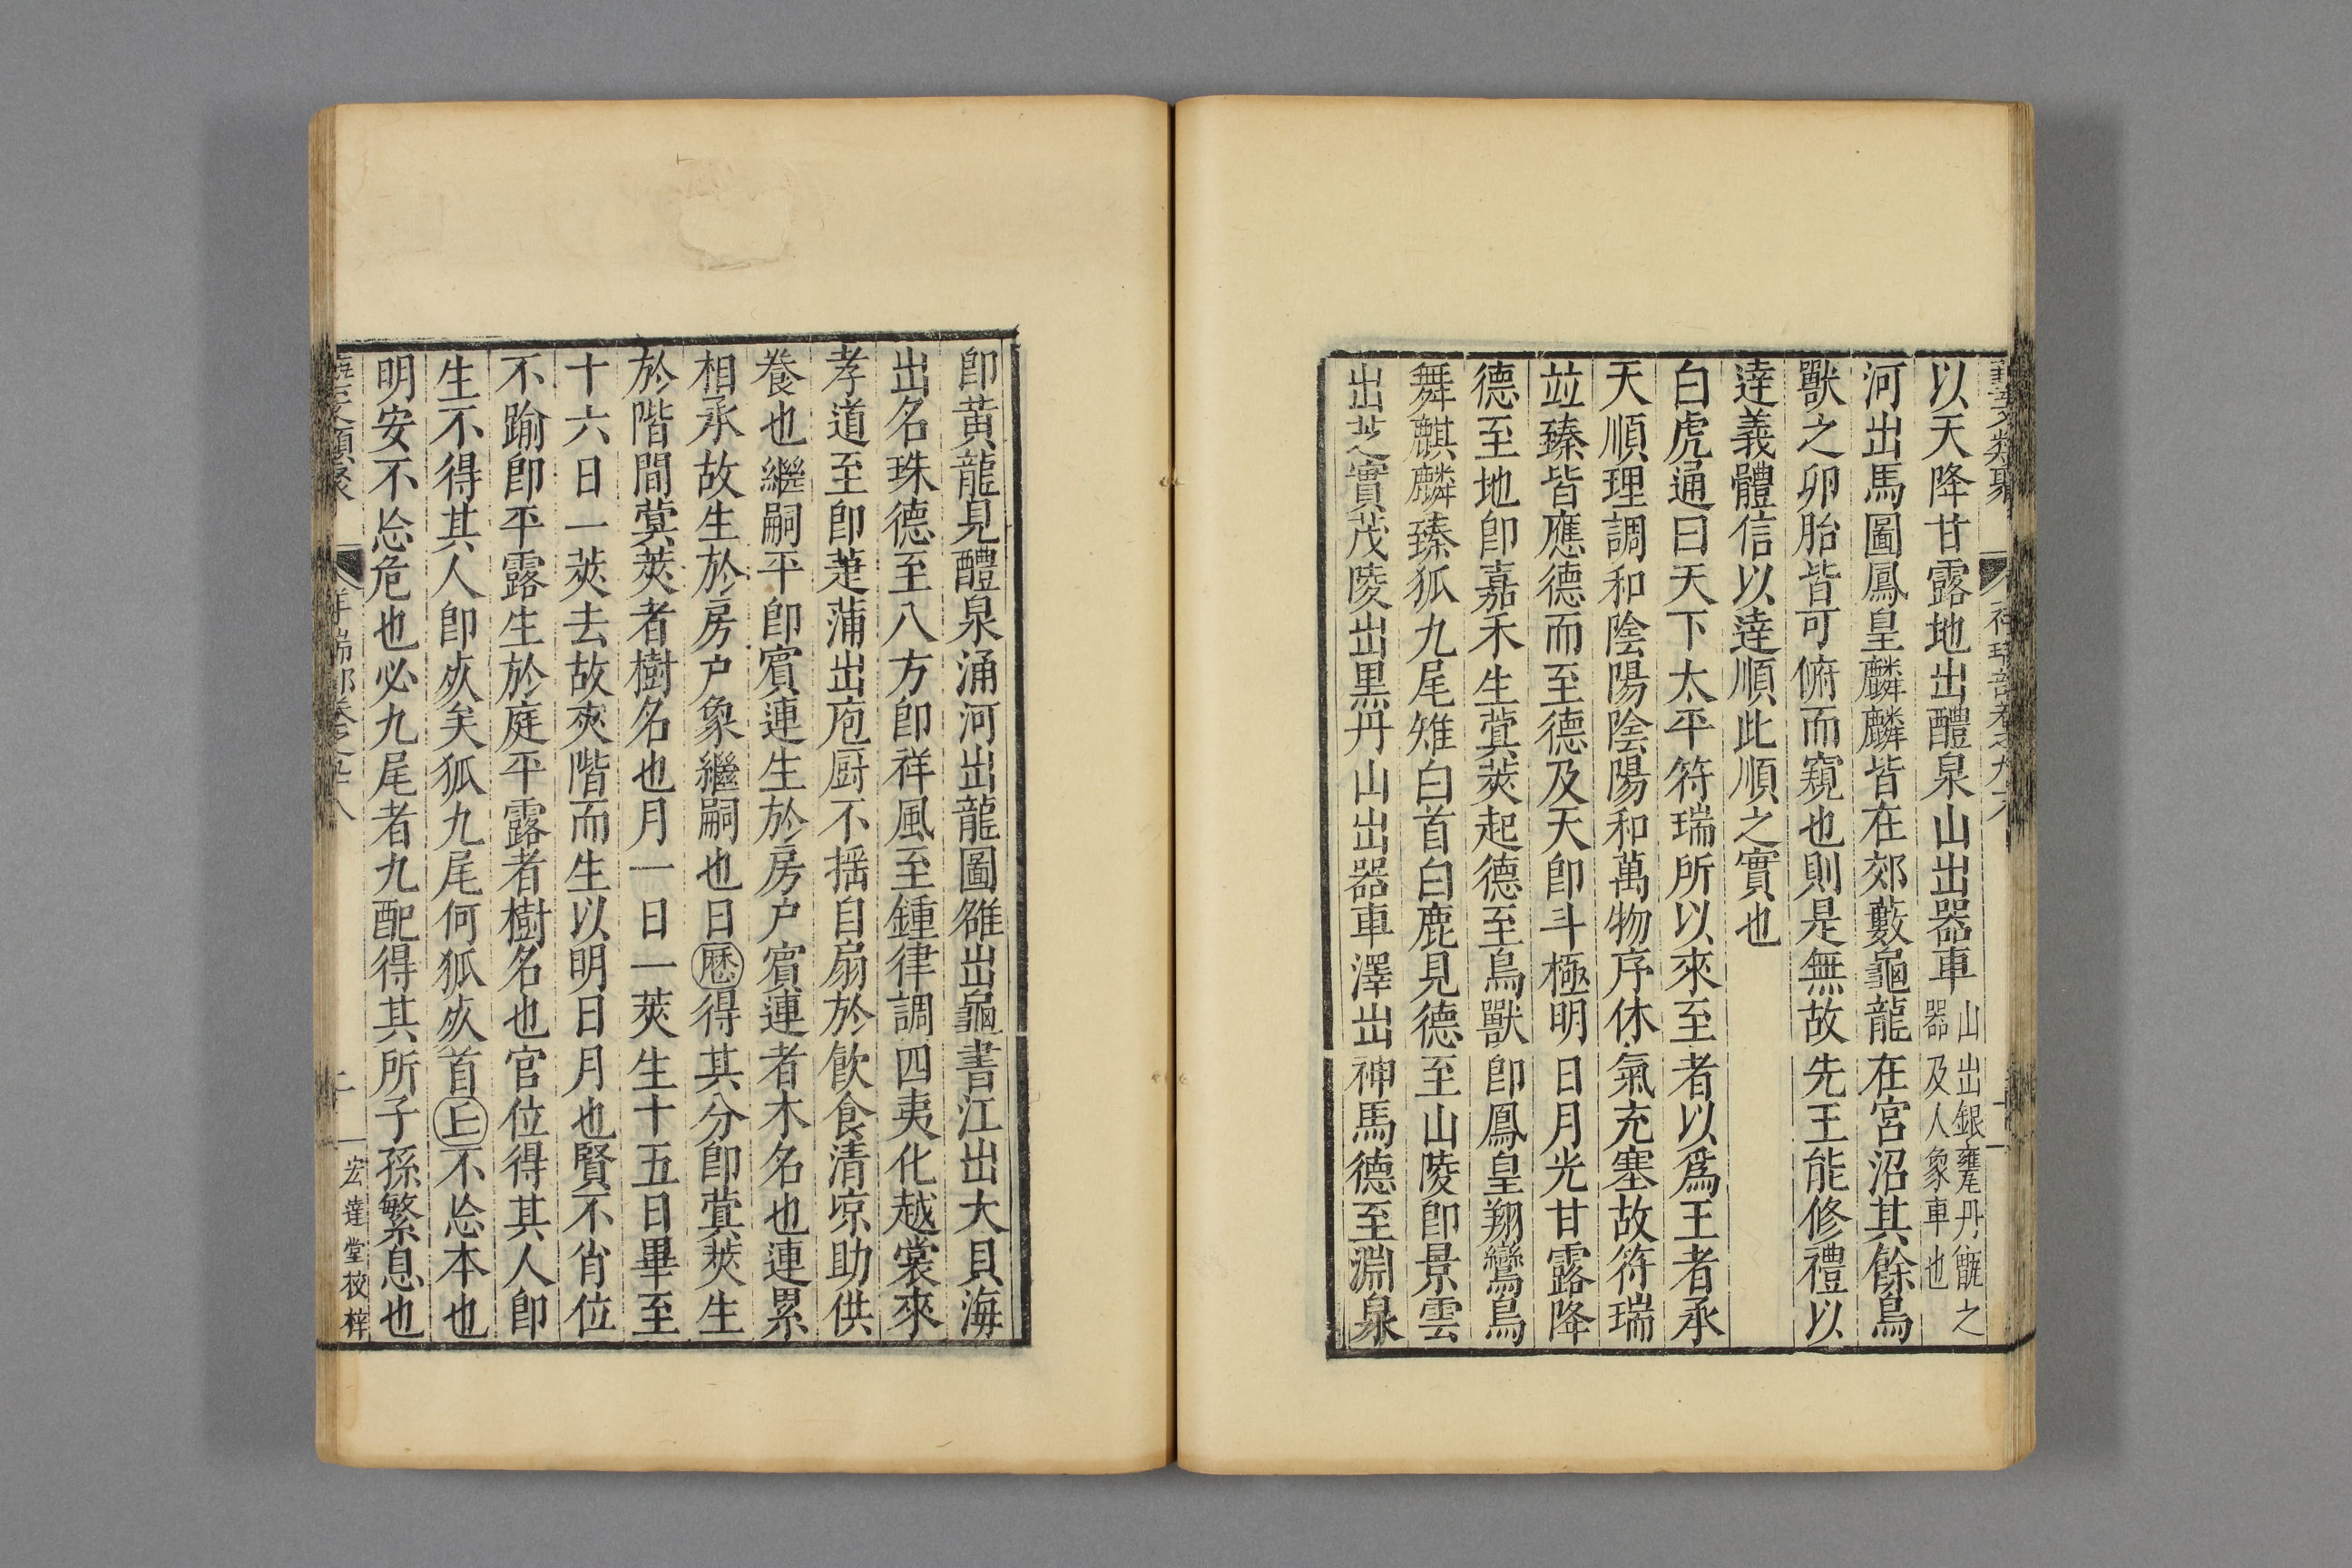 以天降甘露地出醴泉山出器車山出銀甕丹甑之器及人象車也
河出馬圖鳳皇麟麟皆在郊藪龜龍在宮沼其餘鳥
獸之卵胎皆可俯而窺也則是無故先王能修禮以
達義體信以達順此順之實也
白虎通曰天下太平符瑞所以來至者以爲王者承
天順理調和陰陽陰陽和萬物序休氣充塞故符瑞
竝臻皆應德而至德及天即斗極明日月光甘露降
德至地即嘉禾生蓂莢起德至鳥獸即鳳皇翔鸞鳥
舞麒麟臻狐九尾雉白首白鹿見德至山陵即景雲
出芝實茂陵出黑丹山出器車澤出神馬德至淵泉
即黃龍見醴泉涌河出龍圖雒出龜書江出大貝海
出名珠德至八方即祥風至鍾律調四夷化越裳來
孝道至即萐蒲出庖厨不搖自扇於飲食清凉助供
養也繼嗣平即賓連生於房户賓連者木名也連累
相承故生於房户象繼嗣也日曆得其分即蓂莢生
於階間蓂莢者樹名也月一日一莢生十五日畢至
十六日一莢去故夾階而生以明日月也賢不肖位
不踰即平露生於庭平露者樹名也官位得其人即
生不得其人即死矣狐九尾何狐死首丘不忘本也
明安不忘危也必九尾者九配得其所子孫繁息也
宏達堂校梓